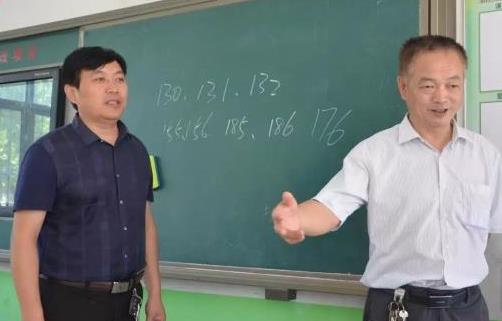 130、131、132
155.156 185、186 176